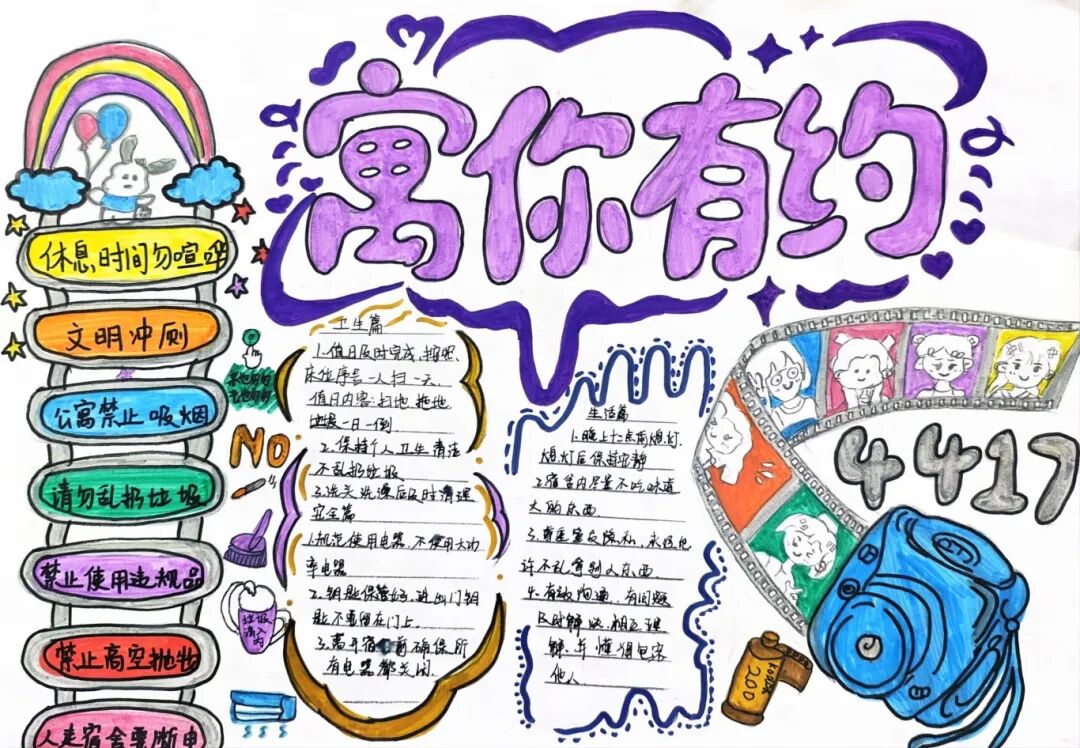 寓你有约
休息时间勿喧哗
文明冲厕
公寓禁止吸烟
请勿乱扔垃圾
禁止使用违规品
禁止高空抛物
人走宿舍要断电
NO
垃圾
请入
内
卫生篇
1.值日及时完成,按照
床位序号一人扫一天.
值日内容:扫地 拖地
垃圾一日一倒
2.保持个人卫生清洁
不乱扔垃圾
3.洗头洗澡后及时清理
安全篇
1.规范使用电器,不使用大功
率电器
2.钥匙保管好,进出门钥
匙不要留在门上.
3.离开宿 前确保所
有电器都关闭.
生活篇
1.晚上十点前熄灯.
熄灯后保持安静
2.宿舍内尽量不吃味道
大的东西
3.尊重室友隐私,未经允
许不乱拿别人东西.
4.有效沟通,有问题
及时解决,相互理
解,并懂得包容
他人.
4417
KODAK
200